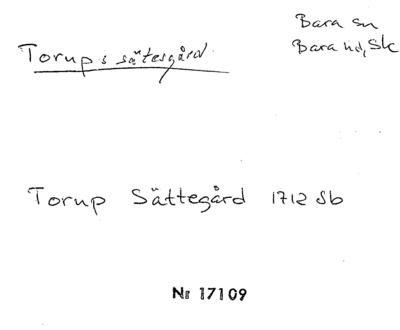 Torups sätesgård
Bara sn
Bara hd, Sk
Torup Sättegård 1712 Jb
Nr 17109